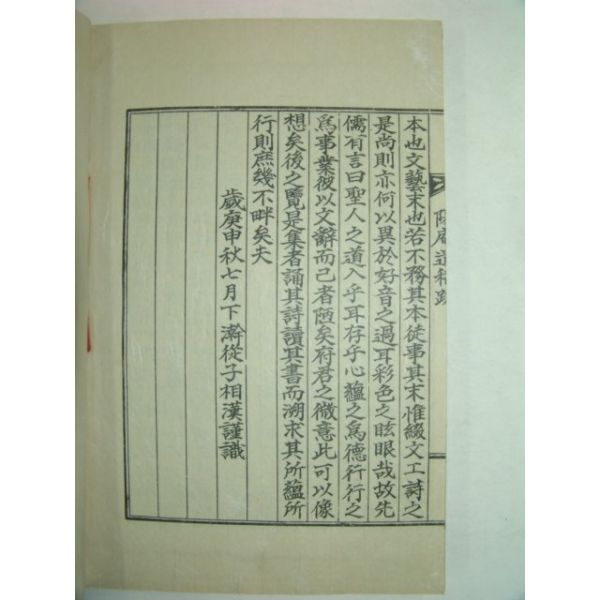 遺稿跋
本也文藝末也若不務其本徒事其末惟綴文工詩之
是尚則亦何以異於好音之過耳彩色之眩眼哉故先
儒有言曰聖人之道入乎耳存乎心蘊之爲德行行之
爲事業彼以文辭而已者陋矣府君之微意此可以像
想矣後之覽是集者誦其詩讀其書而溯求其所蘊所
行則庶幾不畔矣夫
歲庚申秋七月下澣從子相漢謹識